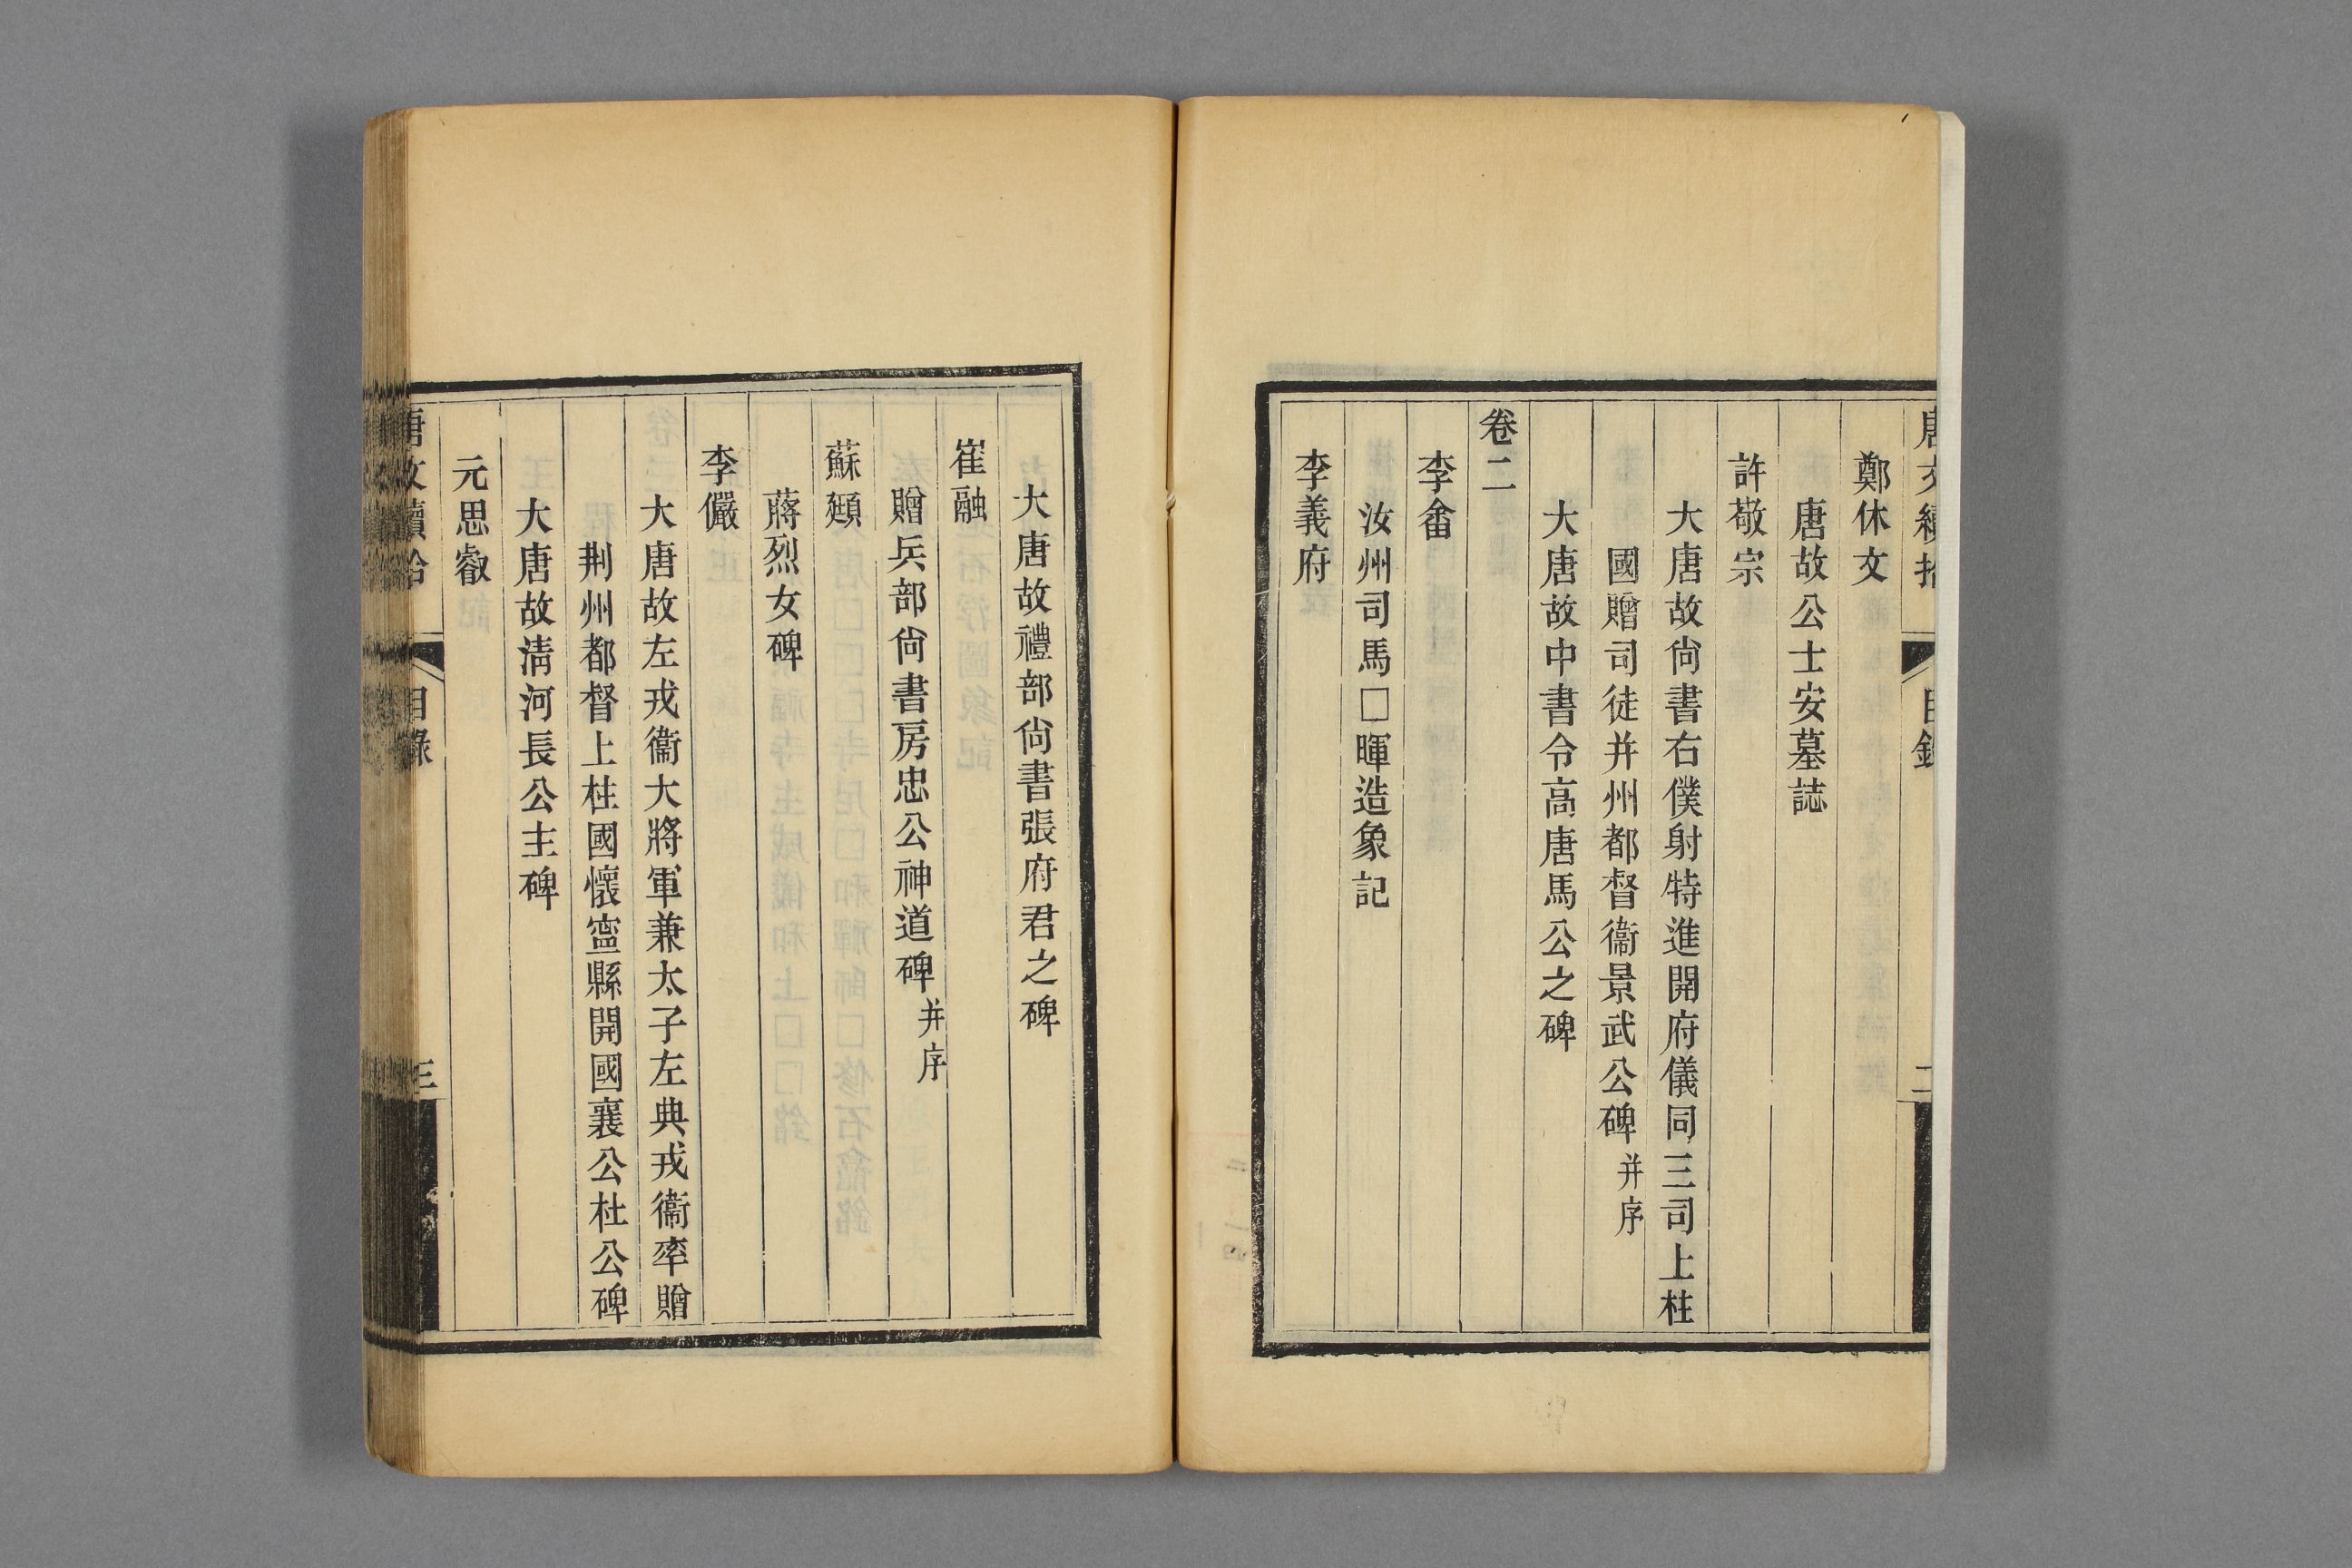 唐文續拾
目錄
二
鄭休文
唐故公士安墓誌
許敬宗
大唐故尙書右僕射特進開府儀同三司上柱
國贈司徒并州都督衞景武公碑并序
大唐故中書令高唐馬公之碑
卷二
李畬
汝州司馬□暉造象記
李義府
大唐故禮部尙書張府君之碑
崔融
贈兵部尙書房忠公神道碑并序
蘇頲
蔣烈女碑
李儼
大唐故左戎衞大將軍兼太子左典戎衞率贈
荆州都督上柱國懷寧縣開國襄公杜公碑
大唐故淸河長公主碑
元思叡
唐文續拾
目錄
三